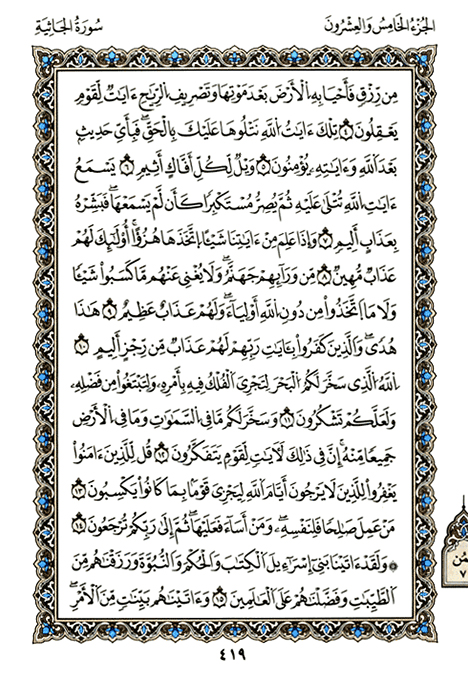 الجزء الخامس والعشرون
سورة الجاثية
مِن رِّزْقٍ فَأَحْيَا بِهِ الْأَرْضَ بَعْدَ مَوْتِهَا وَتَصْرِيفِ الرِّيَاحِ ءَايَٰتٌ لِّقَوْمٍ
يَعْقِلُونَ ٤ تِلْكَ ءَايَٰتُ اللَّهِ نَتْلُوهَا عَلَيْكَ بِالْحَقِّ فَبِأَيِّ حَدِيثٍ
بَعْدَ اللَّهِ وَءَايَٰتِهِ يُؤْمِنُونَ ٥ وَيْلٌ لِّكُلِّ أَفَّاكٍ أَثِيمٍ ٦ يَسْمَعُ
ءَايَٰتِ اللَّهِ تُتْلَىٰ عَلَيْهِ ثُمَّ يُصِرُّ مُسْتَكْبِرًا كَأَن لَّمْ يَسْمَعْهَا فَبَشِّرْهُ
بِعَذَابٍ أَلِيمٍ ٧ وَإِذَا عَلِمَ مِنْ ءَايَٰتِنَا شَيْئًا اتَّخَذَهَا هُزُؤًا أُوْلَٰئِكَ لَهُمْ
عَذَابٌ مُّهِينٌ ٨ مِّن وَرَآئِهِمْ جَهَنَّمُ وَلَا يُغْنِي عَنْهُم مَّا كَسَبُوا شَيْئًا
وَلَا مَا اتَّخَذُوا مِن دُونِ اللَّهِ أَوْلِيَآءَ وَلَهُمْ عَذَابٌ عَظِيمٌ ٩ هَٰذَا
هُدًى وَالَّذِينَ كَفَرُوا بِـَٔايَٰتِ رَبِّهِمْ لَهُمْ عَذَابٌ مِّن رِّجْزٍ أَلِيمٍ ١٠
اللَّهُ الَّذِي سَخَّرَ لَكُمُ الْبَحْرَ لِتَجْرِيَ الْفُلْكُ فِيهِ بِأَمْرِهِ وَلِتَبْتَغُوا مِن فَضْلِهِ
وَلَعَلَّكُمْ تَشْكُرُونَ ١١ وَسَخَّرَ لَكُم مَّا فِي السَّمَٰوَٰتِ وَمَا فِي الْأَرْضِ
جَمِيعًا مِّنْهُ إِنَّ فِي ذَٰلِكَ لَأٓيَٰتٍ لِّقَوْمٍ يَتَفَكَّرُونَ ١٢ قُل لِّلَّذِينَ ءَامَنُوا
يَغْفِرُوا لِلَّذِينَ لَا يَرْجُونَ أَيَّامَ اللَّهِ لِيَجْزِيَ قَوْمًا بِمَا كَانُوا يَكْسِبُونَ ١٣
مَنْ عَمِلَ صَٰلِحًا فَلِنَفْسِهِ وَمَنْ أَسَآءَ فَعَلَيْهَا ثُمَّ إِلَىٰ رَبِّكُمْ تُرْجَعُونَ ١٤
وَلَقَدْ ءَاتَيْنَا بَنِي إِسْرَآءِيلَ الْكِتَٰبَ وَالْحُكْمَ وَالنُّبُوءَةَ وَرَزَقْنَٰهُم مِّنَ
الطَّيِّبَٰتِ وَفَضَّلْنَٰهُمْ عَلَى الْعَٰلَمِينَ ١٥ وَءَاتَيْنَٰهُم بَيِّنَٰتٍ مِّنَ الْأَمْرِ
٤١٩